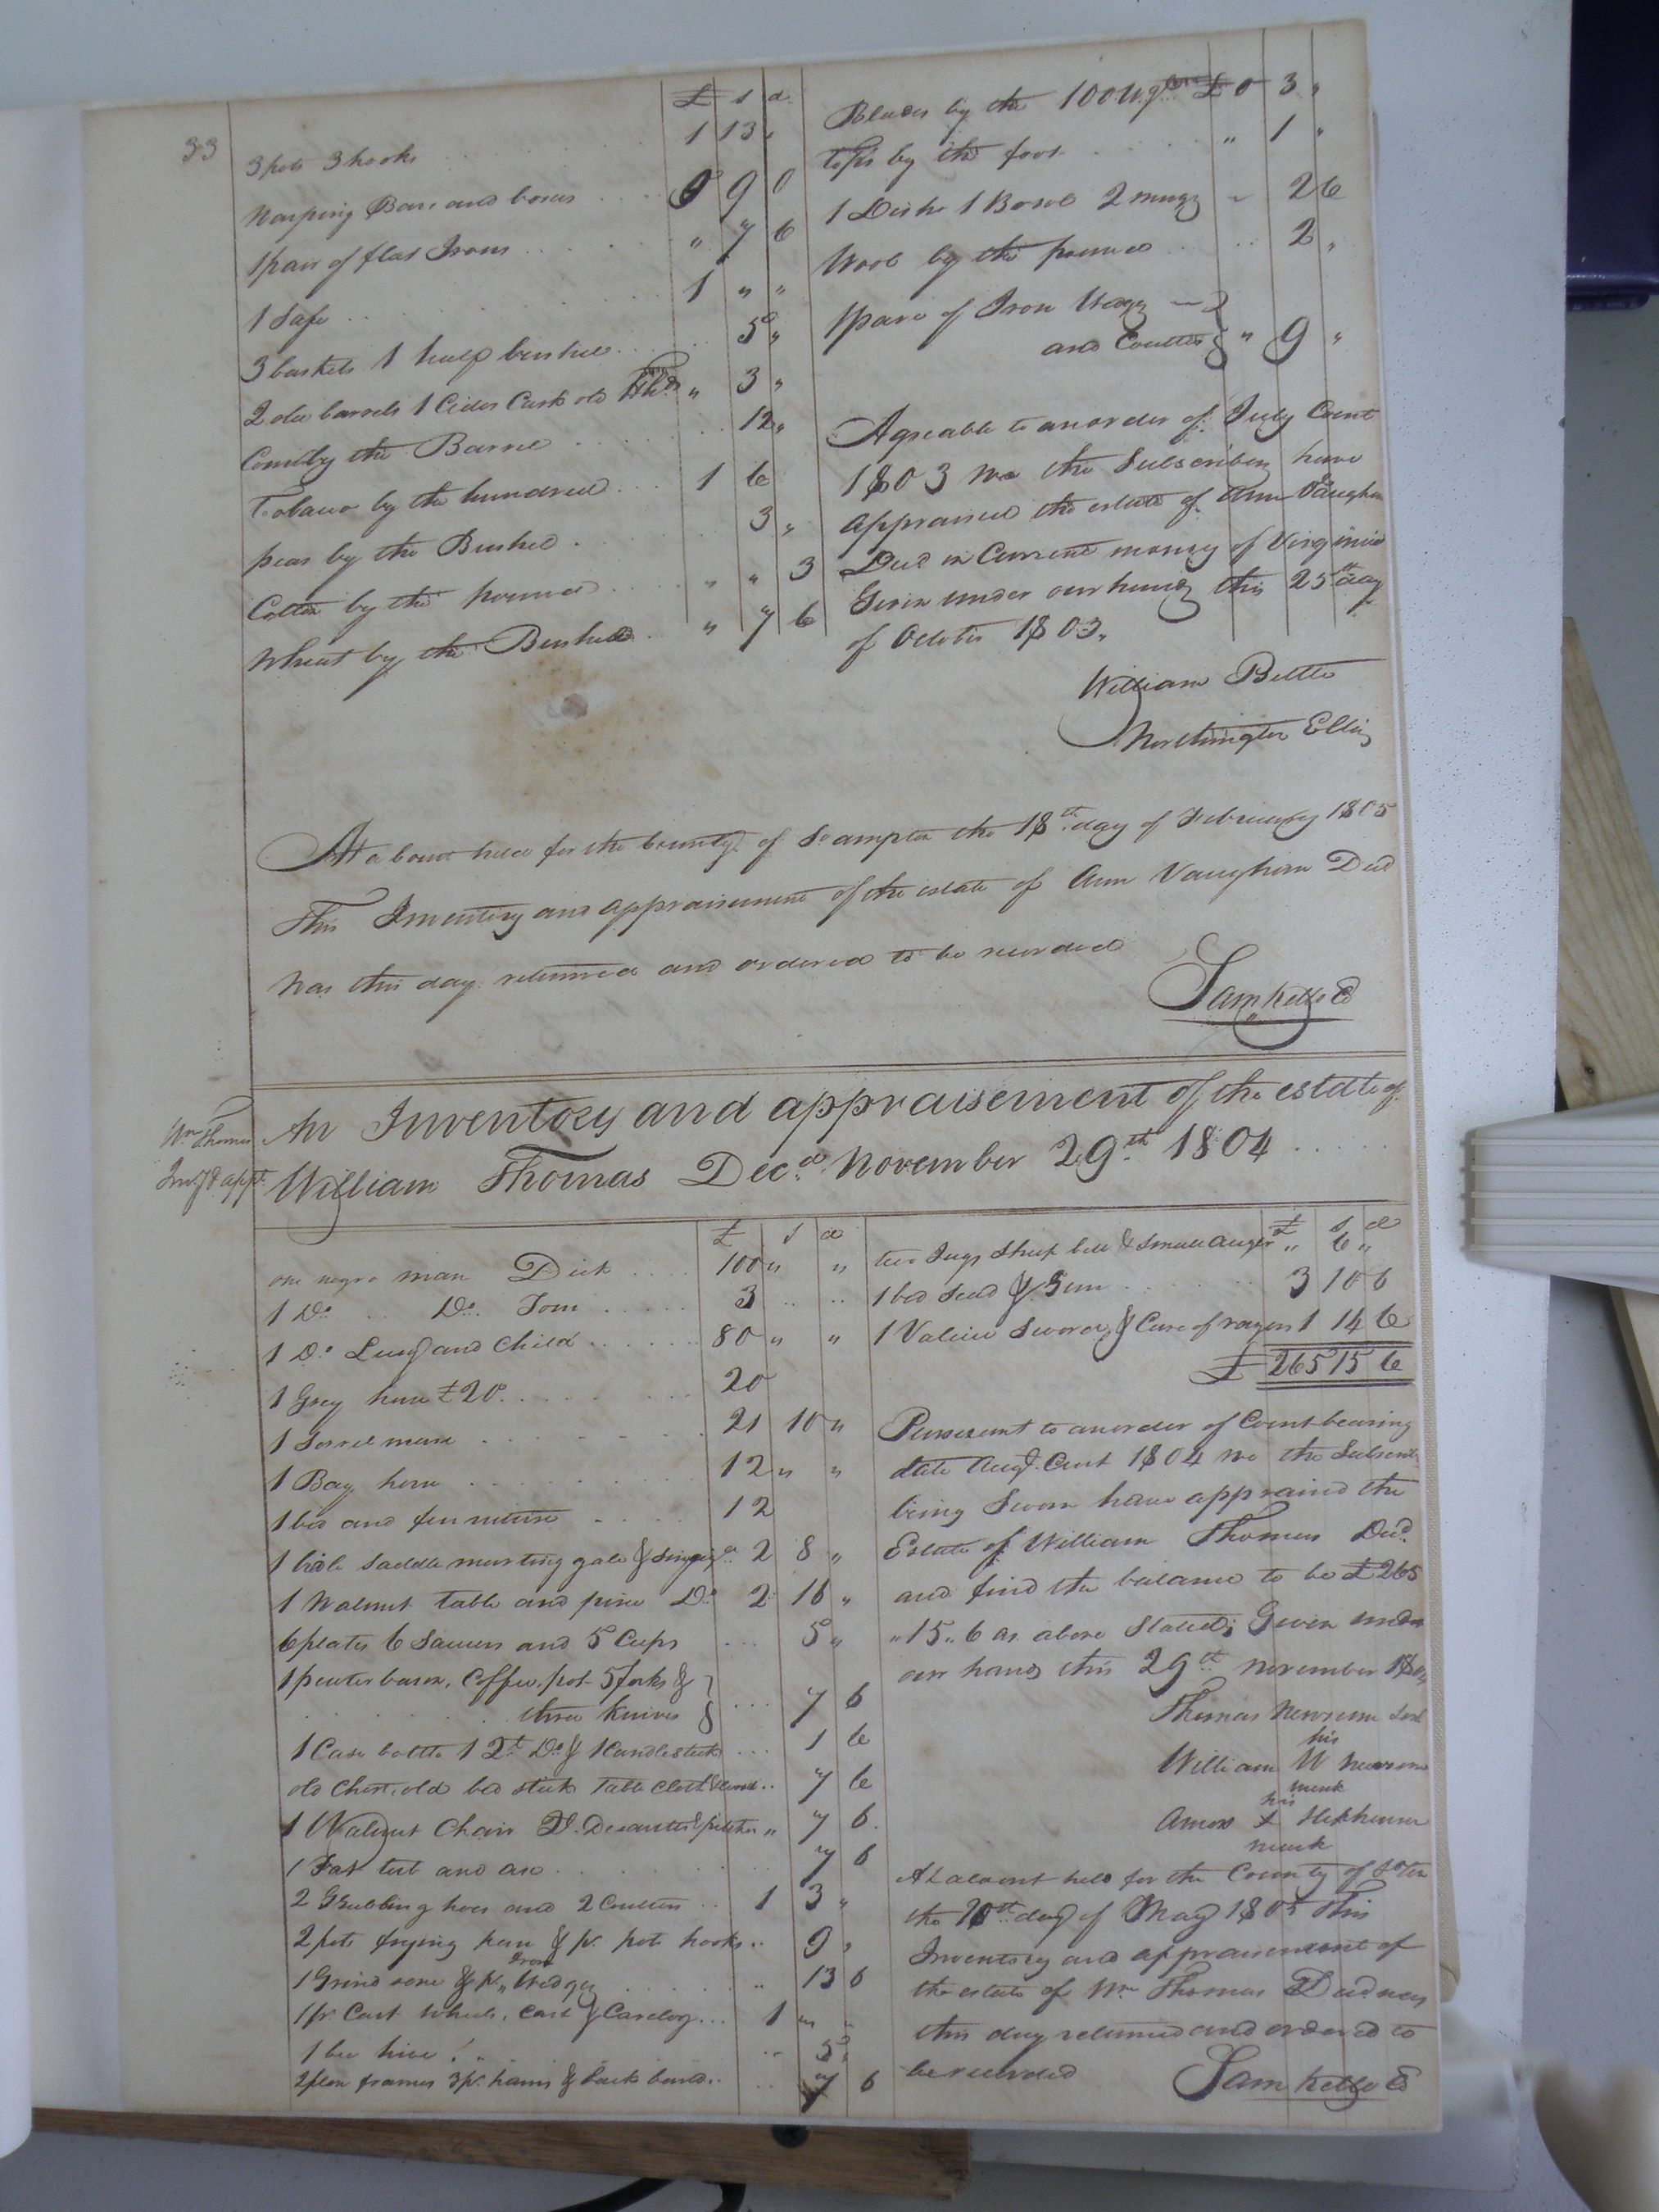 33
£ s d
3 pots 3 hooks 1 13 "
Warping Bars and boxes 0 9 0
1 pair of flat Irons " 7 6
1 Safe 1 " "
3 baskets 1 half bushel 5 "
2 old barrels 1 Cider Cask old Hhds " 3 "
Corn by the Barrel 12 "
Tobacco by the hundred 1 6
peas by the Bushel 3 "
Cotton by the pound " " 3
Wheat by the Bushel " 7 6
Blades by the 100 Wg £ 0 3 "
by the foot " 1 "
1 Dish 1 Bowl 2 mugs " 2 6
Wool by the pound 2 "
1 pare of Iron Wegg
and Coulter " 9 "
Agreable to an order of July Court
1803 We the Subscribing have
appraised the estate of Ann Vaughan
Decd in Current money of Virginia
Given under our hands this 25th day
of Octobr 1803.
William Bittle
Worthington Ellis
At a Court held for the County of So ampton the 18th day of February 1805
This Inventory and appraisement of the estate of Ann Vaughan Decd
Was this day returned and ordered to be recorded
Sam Kello C
Wm Thomas
Invy & appt
An Inventory and appraisement of the estate of
William Thomas Decd November 29th 1804
£ s d
one negro man Dick 100 " "
1 Do Do Tom 3
1 Do Lucy and Child 80 " "
1 Grey horse £20 20
1 Sorrel mare 21 10 "
1 Bay horse 12 " "
1 bed and furniture 12
1 bridle saddle martingale & 2 8 "
1 Walnut table and pine Do 2 16 "
6 plates 6 Sausers and 5 Cups 5 "
1 peuter bason, Coffee pot 5 forks &
three Knives 7 6
1 Case bottle 1 Qt Do & 1 Candlestick 1 6
old Chest, old bed stead Table Cloth & 7 6
1 Walnut Chair Decanter & pitcher " 7 6
1 Fat tub and axe 7 6
2 Grubbing hoes and 2 Coulters 1 3 "
2 pots frying pan & pr pot hooks 9 "
1 Grind sone & pr Iron Wedges 13 6
1 pr Cart Wheels, Cart & 1 "
1 bee hive 5 "
2 plow frames 3 pr hams & back band 7 6
£ s d
two Jugs Sheep bell & Small auger " 6 "
1 bed Stead & Gun 3 10 6
1 Valice Sword & Case of razors 1 14 6
£ 265 15 6
Pursuant to an order of Court bearing
date Augt Curt 1804 we the Subscrib
being Sworn have appraised the
Estate of William Thomas Decd
and find the balance to be £265
"15"6 as above Stated; Given under
our hands this 29th November 1804
Thomas Newsum
his
William W Newsom
mark
his
Amos X Stephenson
mark
At a Court held for the County of So ton
the 20th day of May 1805 This
Inventory and appraisement of
the estate of Wm Thomas Decd was
this day returned and ordered to
be recorded Sam Kello C